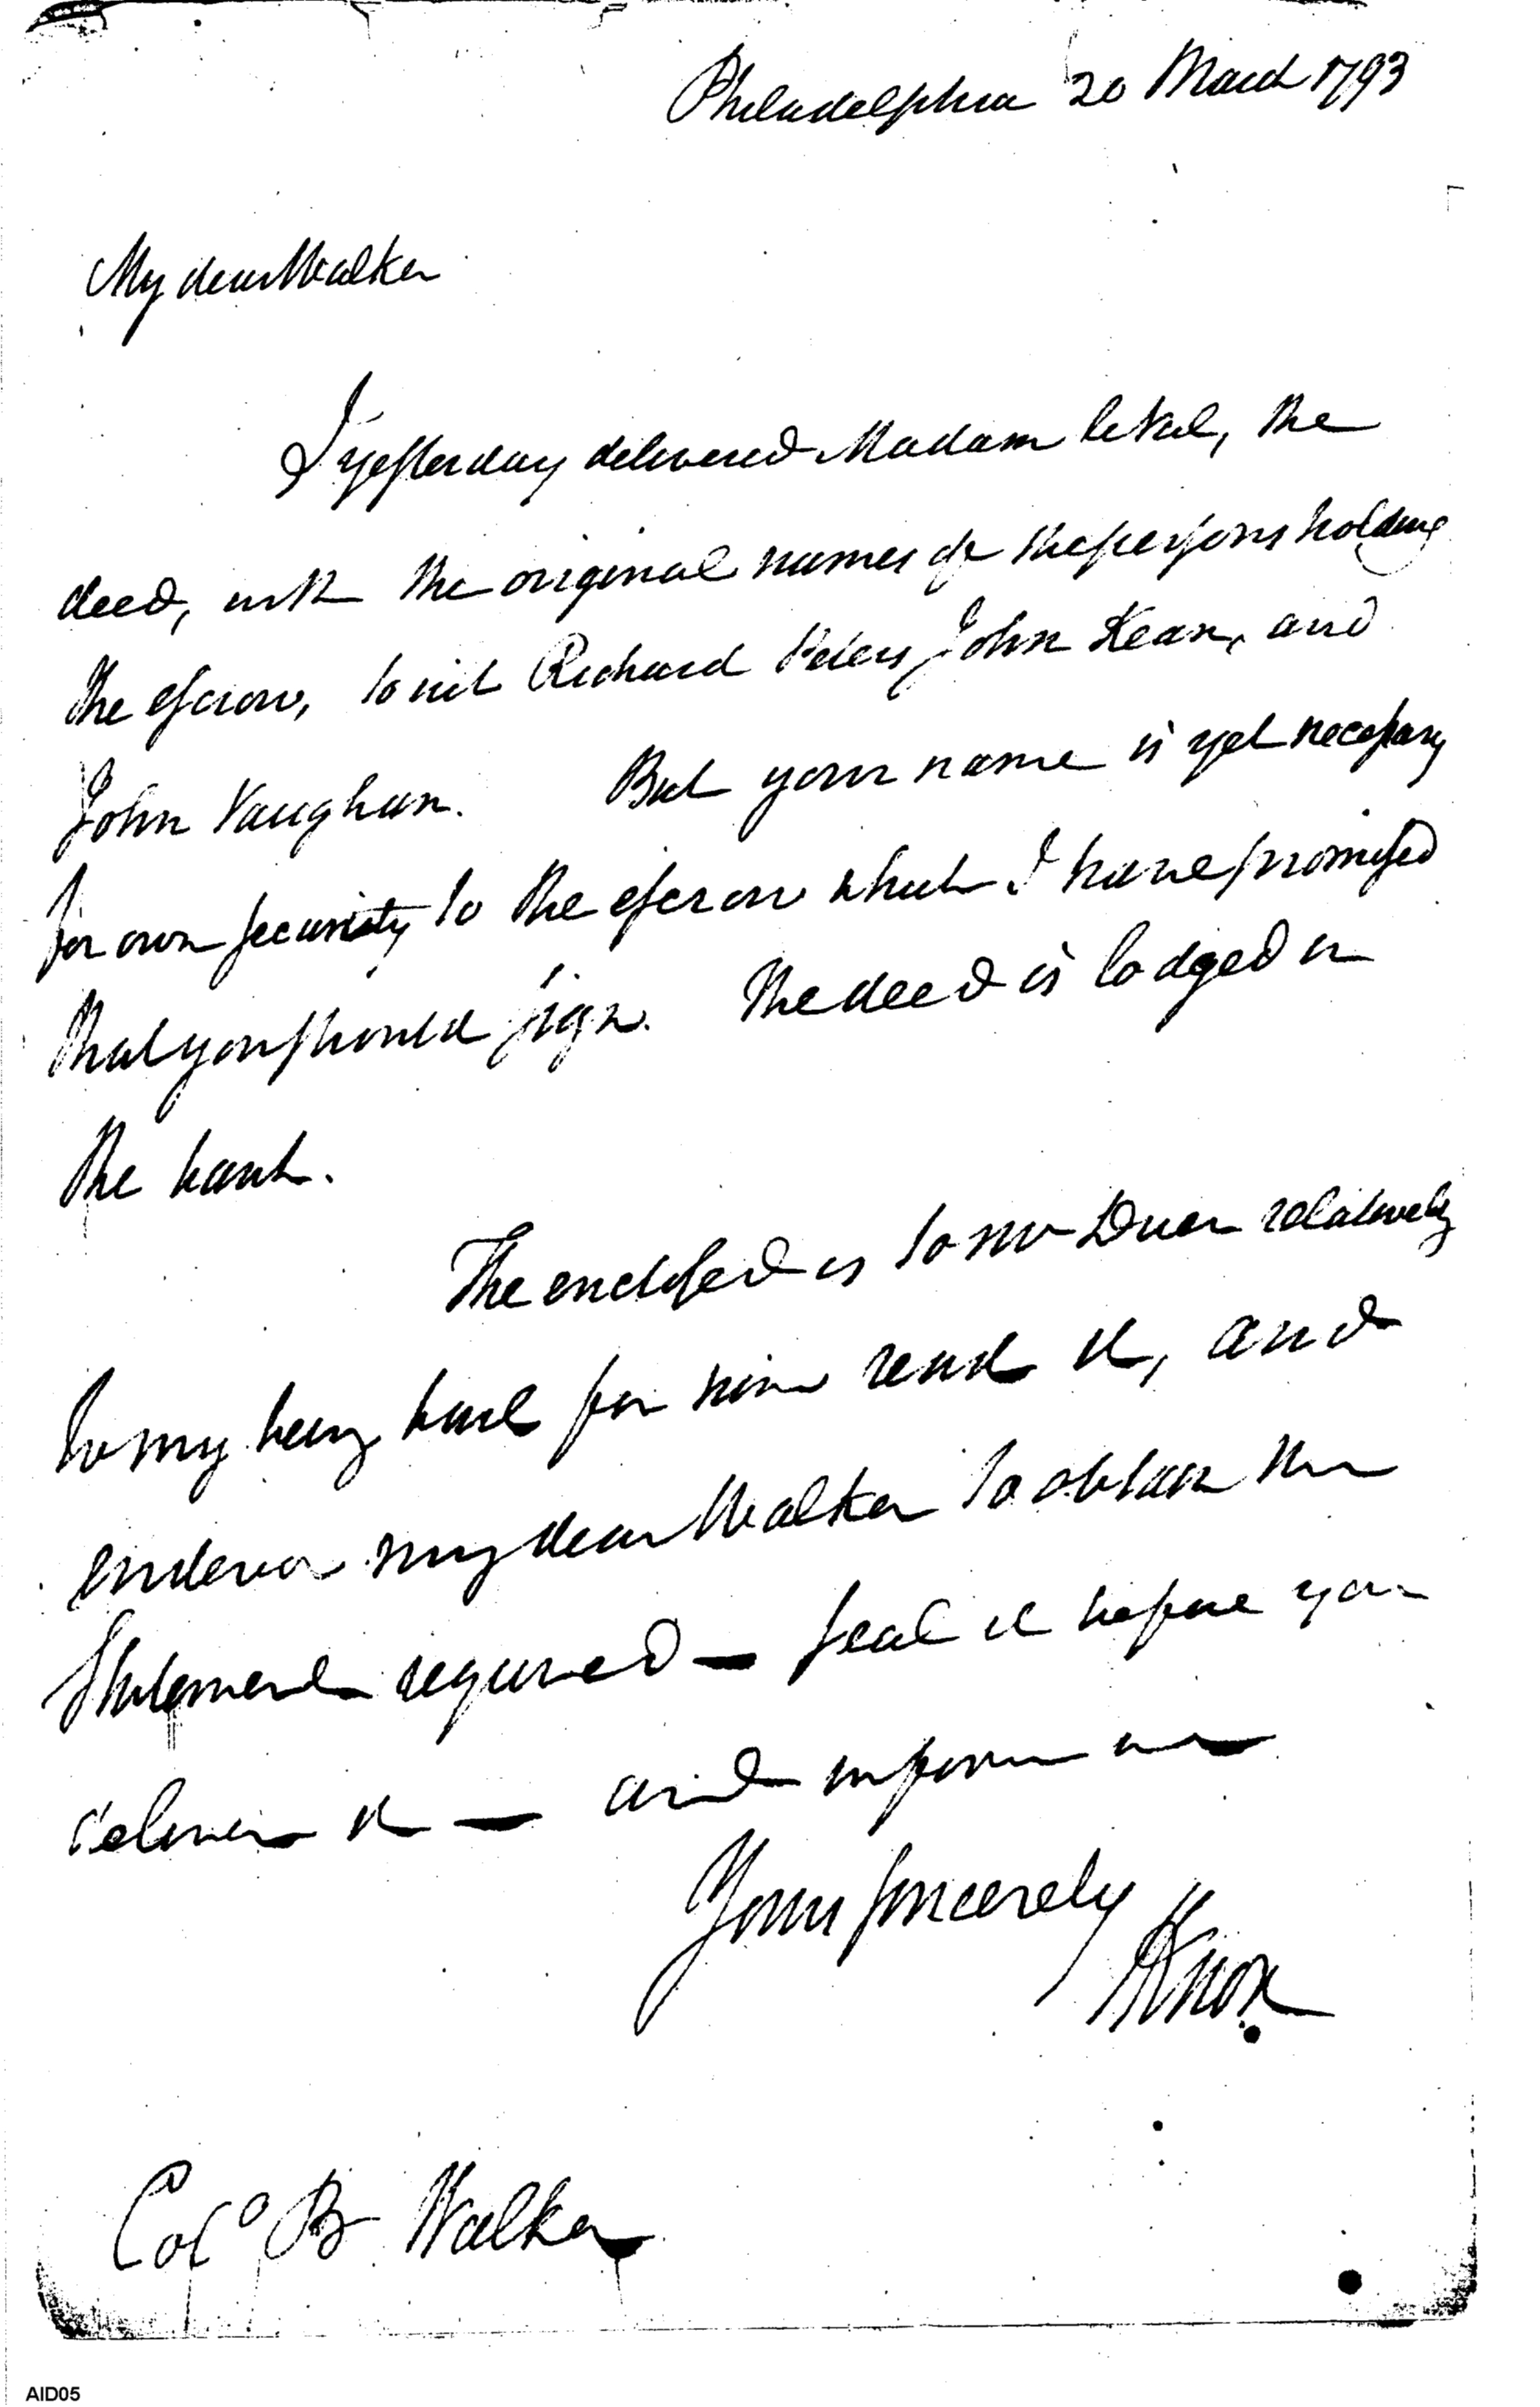 Philadelphia 20 March 1793
My dear Walker
I yesterday delivered Madam LeVal, the
deed, with the original names of the persons holding
the escrow, to wit Richard Peters John Kean, and
John Vaughan. But your name is yet necessary
for own security to the escrow which I have promised
that you should sign. The deed is lodged in
the bank.
The enclosed is to mr Duer relatively
to my being bail for him read it, and
endevor my dear Walker to obtain the
statement required — seal it before you
deliver it — and inform me
Yours sincerely
HKnox
Colo B Walker
AID05